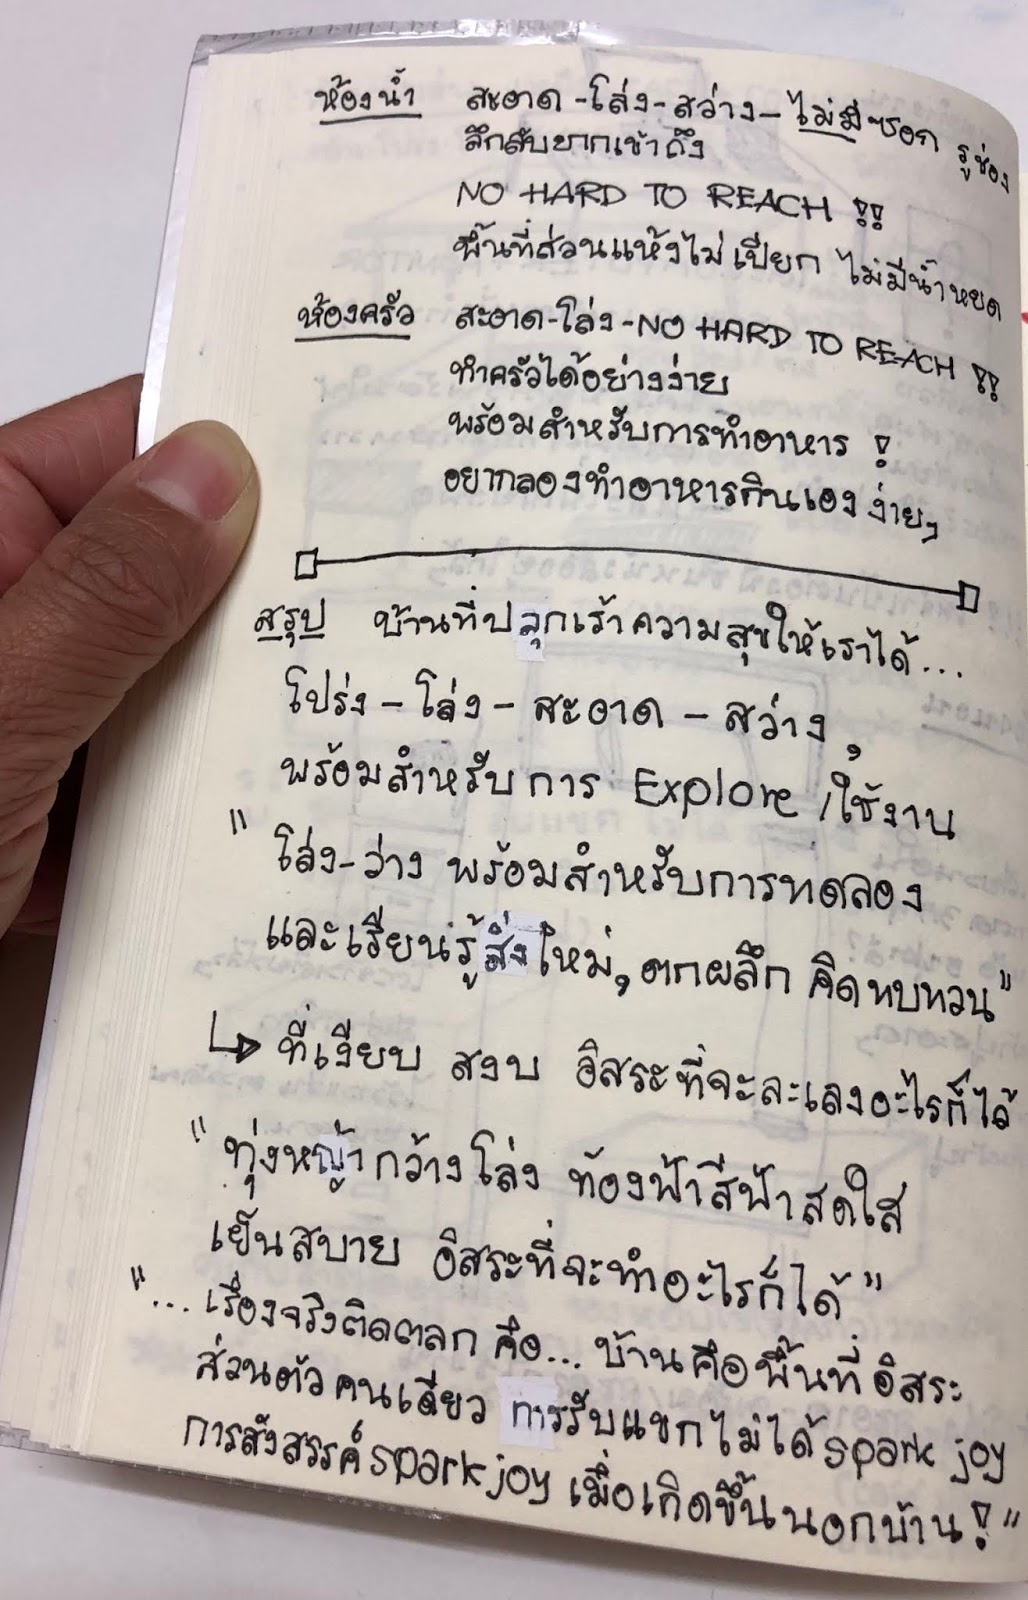 ห้องน้ำ สะอาด-โล่ง-สว่าง-ไม่มีซอก รูช่อง
ลึกลับยากเข้าถึง
NO HARD TO REACH !!
พื้นที่ส่วนแห้งไม่เปียก ไม่มีน้ำหยด
ห้องครัว สะอาด-โล่ง-NO HARD TO REACH !!
ทำครัวได้อย่างง่าย
พร้อมสำหรับการทำอาหาร !
อยากลองทำอาหารกินเองง่ายๆ
สรุป บ้านที่ปลุกเร้าความสุขให้เราได้...
โปร่ง-โล่ง-สะอาด-สว่าง,
พร้อมสำหรับการ Explore /ใช้งาน
"โล่ง-ว่าง พร้อมสำหรับการทดลอง
และเรียนรู้สิ่งใหม่, ตกผลึก คิดทบทวน"
↳ ที่เงียบ สงบ อิสระที่จะละเลงอะไรก็ได้
"ทุ่งหญ้ากว้างโล่ง ท้องฟ้าสีฟ้าสดใส
เย็นสบาย อิสระที่จะทำอะไรก็ได้"
"...เรื่องจริงติดตลก คือ... บ้านคือพื้นที่อิสระ
ส่วนตัวคนเดียว การรับแขกไม่ได้ spark joy
การสังสรรค์ spark joy เมื่อเกิดขึ้นนอกบ้าน!"